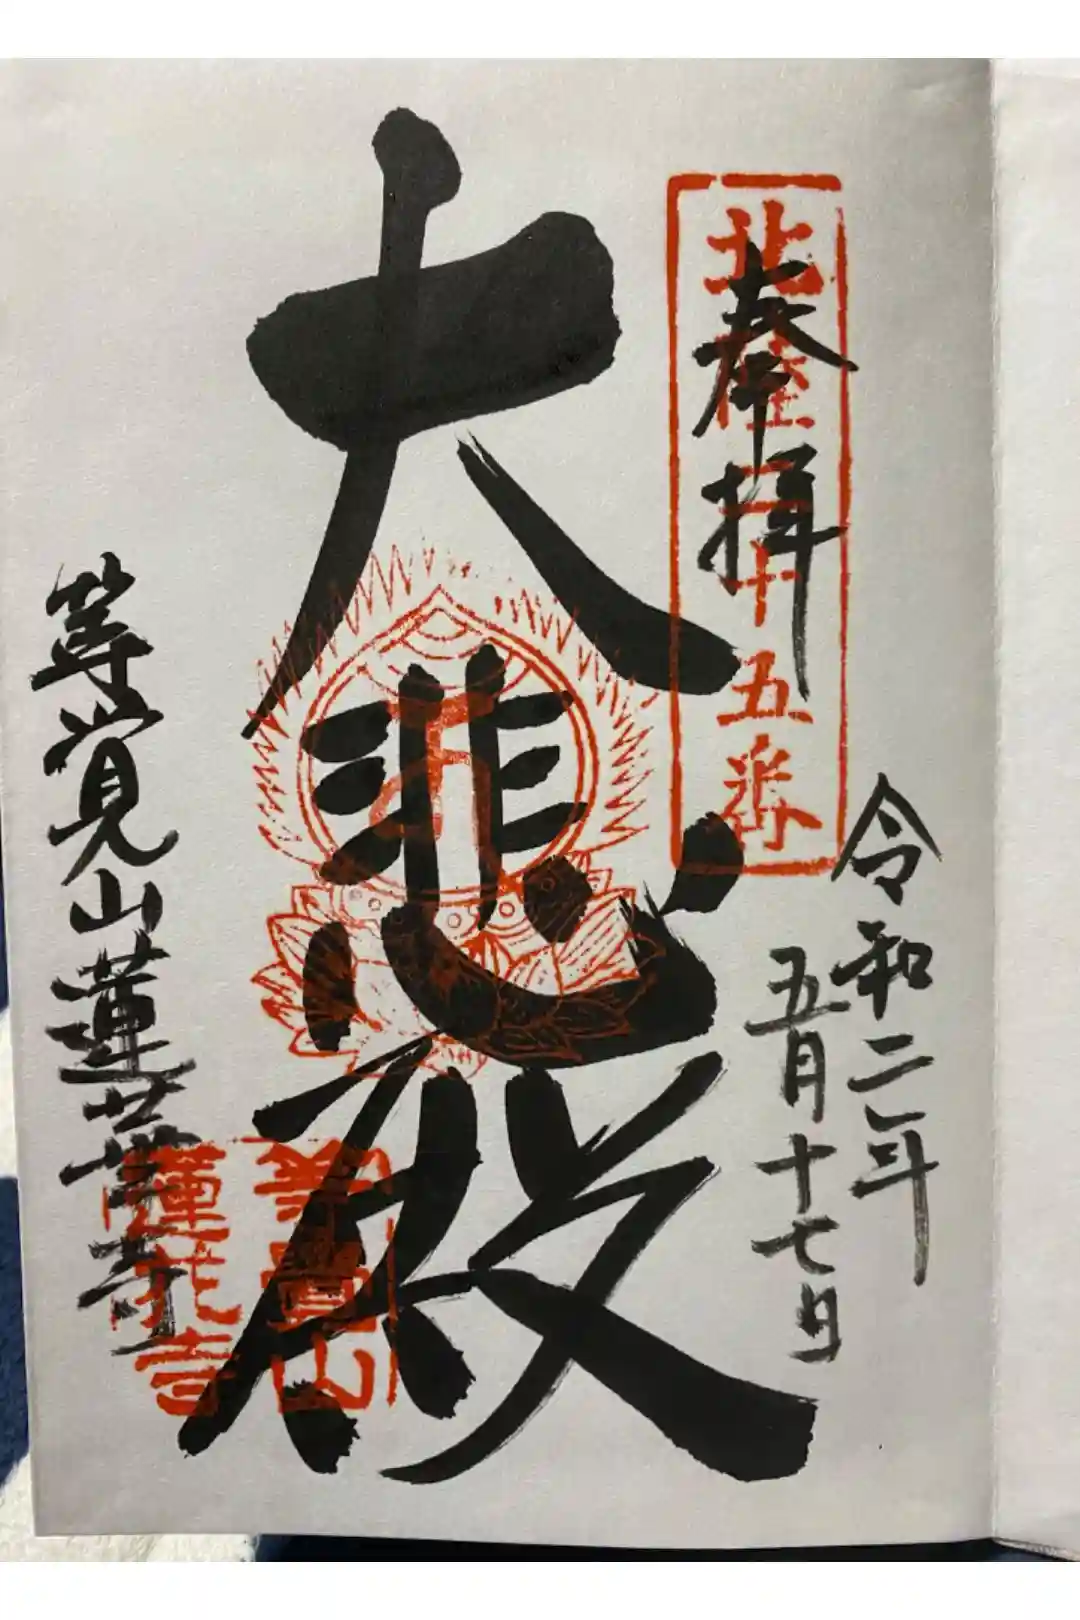 北陸二十五番
奉拝
令和二年
五月十七日
大悲殿
等覚山蓮華寺
等覺山
蓮花寺